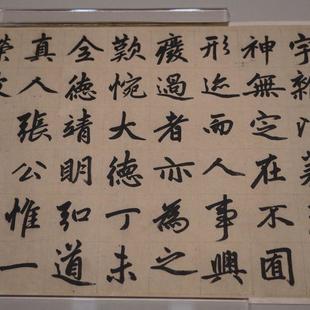 宇
神無定在不囿
形迹而人事興
廢過者亦為之
歎惋大德丁未
全德靖明弘道
真人張公惟一